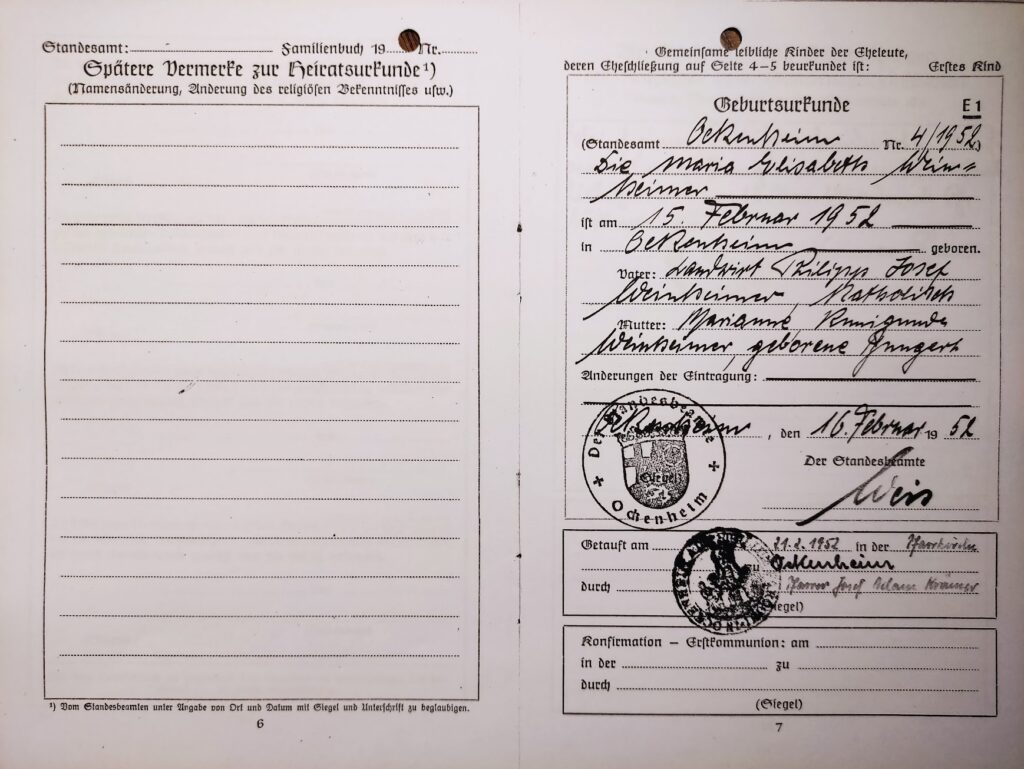 Standesamt: Familienbuch 19 Nr.
Spätere Vermerke zur Heiratsurkunde¹)
(Namensänderung, Änderung des religiösen Bekenntnisses usw.)
¹) Vom Standesbeamten unter Angabe von Ort und Datum mit Siegel und Unterschrift zu beglaubigen.
6
Gemeinsame leibliche Kinder der Eheleute,
deren Eheschließung auf Seite 4–5 beurkundet ist: Erstes Kind
Geburtsurkunde E 1
(Standesamt Ockenheim Nr. 4/1952)
Die Maria Elisabeth Wein=
heimer
ist am 15. Februar 1952
in Ockenheim geboren.
Vater: Landwirt Philipp Josef
Weinheimer, Katholisch
Mutter: Marianne Kunigunde
Weinheimer, geborene Hungert
Änderungen der Eintragung:
Ockenheim, den 16. Februar 19 52
Der Standesbeamte
Weis
Der Standesbeamte
Siegel
Ockenheim
Getauft am 21.2.1952 in der Pfarrkirche
zu Ockenheim
durch Pfarrer Josef Adam Krämer
(Siegel)
Konfirmation – Erstkommunion: am
in der zu
durch
(Siegel)
7